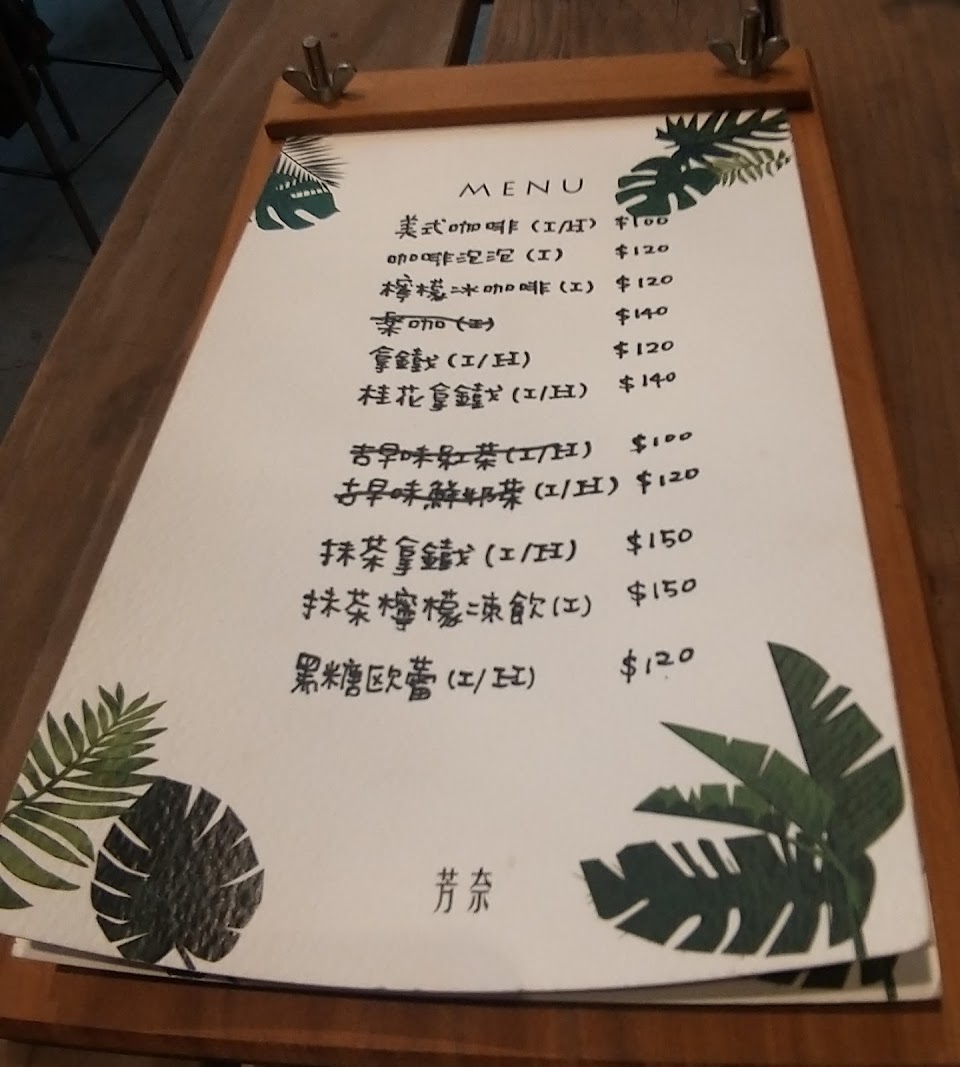 MENU
美式咖啡 (I/H) $100
咖啡泡泡 (I) $120
檸檬冰咖啡 (I) $120
楽咖 (I) $140
拿鐵 (I/H) $120
桂花拿鐵 (I/H) $140
古早味紅茶 (I/H) $100
古早味鮮奶茶 (I/H) $120
抹茶拿鐵 (I/H) $150
抹茶檸檬凍飲 (I) $150
黑糖歐蕾 (I/H) $120
芳奈